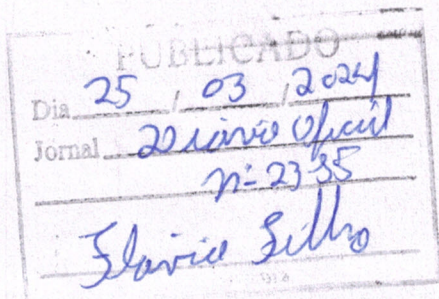 PUBLICADO
Dia 25 / 03 / 2024
Jornal Diário Oficial
nº 2335
Flavia Filho